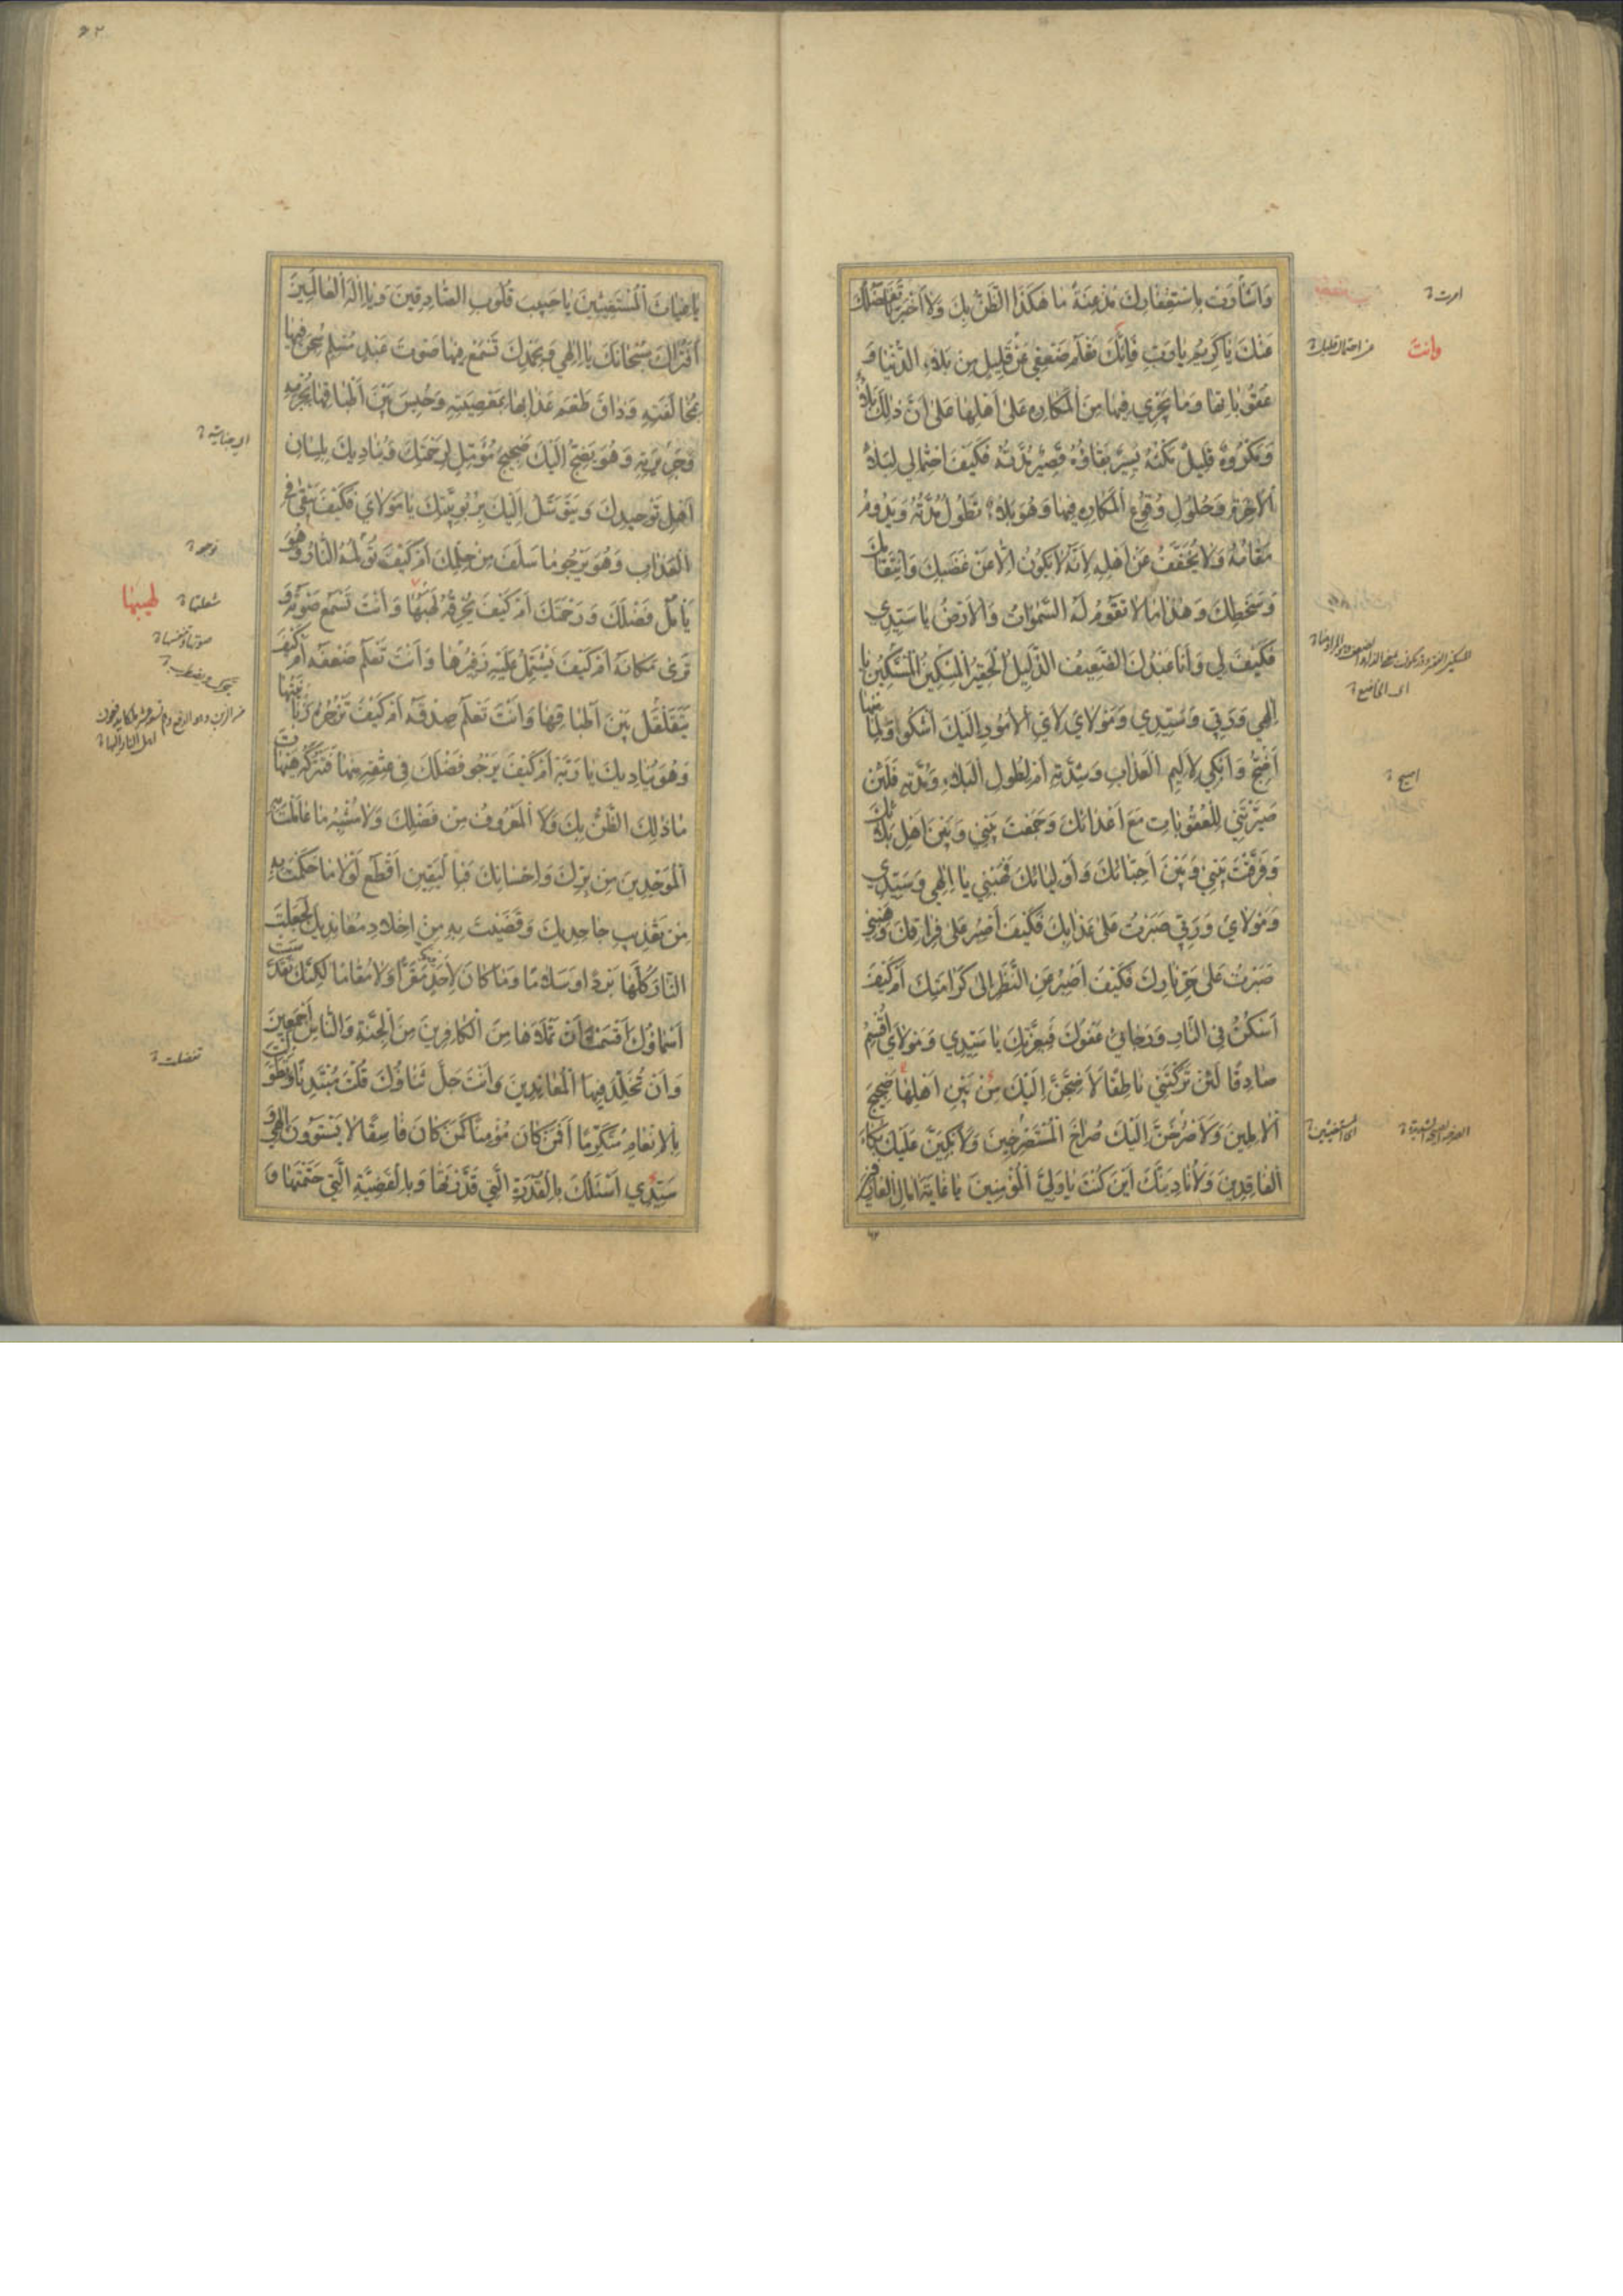 وَاَشٰارَتْ بِاسْتِغْفٰارِكَ مُذْعِنَةً مٰا هٰكَذَا الظَّنُّ بِكَ وَلٰا اُخْبِرْنٰا بِفَضْلِكَ
عَنْكَ يٰا كَرِيمُ يٰا رَبِّ فَاِنَّكَ تَعْلَمُ ضَعْفِي عَنْ قَلِيلٍ مِنْ بَلٰاءِ الدُّنْيٰا وَ
عُقُوبٰاتِهٰا وَمٰا يَجْرِي فِيهٰا مِنَ الْمَكٰارِهِ عَلٰى اَهْلِهٰا عَلٰى اَنَّ ذٰلِكَ بَلٰاءٌ
وَمَكْرُوهٌ قَلِيلٌ مَكْثُهُ يَسِيرٌ بَقٰاؤُهُ قَصِيرٌ مُدَّتُهُ فَكَيْفَ احْتِمٰالِي لِبَلٰاءِ
الْاٰخِرَةِ وَحُلُولِ وُقُوعِ الْمَكٰارِهِ فِيهٰا وَهُوَ بَلٰاءٌ تَطُولُ مُدَّتُهُ وَيَدُومُ
مَقٰامُهُ وَلٰا يُخَفَّفُ عَنْ اَهْلِهِ لِاَنَّهُ لٰا يَكُونُ اِلّٰا عَنْ غَضَبِكَ وَانْتِقٰامِكَ
وَسَخَطِكَ وَهٰذٰا مٰا لٰا تَقُومُ لَهُ السَّمٰوٰاتُ وَالْاَرْضُ يٰا سَيِّدِي
فَكَيْفَ لِي وَاَنَا عَبْدُكَ الضَّعِيفُ الذَّلِيلُ الْحَقِيرُ الْمِسْكِينُ الْمُسْتَكِينُ يٰا
اِلٰهِي وَرَبِّي وَسَيِّدِي وَمَوْلٰايَ لِاَيِّ الْاُمُورِ اِلَيْكَ اَشْكُو وَلِمٰا مِنْهٰا
اَضِجُّ وَاَبْكِي لِاَلِيمِ الْعَذٰابِ وَشِدَّتِهِ اَمْ لِطُولِ الْبَلٰاءِ وَمُدَّتِهِ فَلَئِنْ
صَيَّرْتَنِي لِلْعُقُوبٰاتِ مَعَ اَعْدٰائِكَ وَجَمَعْتَ بَيْنِي وَبَيْنَ اَهْلِ بَلٰائِكَ
وَفَرَّقْتَ بَيْنِي وَبَيْنَ اَحِبّٰائِكَ وَاَوْلِيٰائِكَ فَهَبْنِي يٰا اِلٰهِي وَسَيِّدِي
وَمَوْلٰايَ وَرَبِّي صَبَرْتُ عَلٰى عَذٰابِكَ فَكَيْفَ اَصْبِرُ عَلٰى فِرٰاقِكَ وَهَبْنِي
صَبَرْتُ عَلٰى حَرِّ نٰارِكَ فَكَيْفَ اَصْبِرُ عَنِ النَّظَرِ اِلٰى كَرٰامَتِكَ اَمْ كَيْفَ
اَسْكُنُ فِي النّٰارِ وَرَجٰائِي عَفْوُكَ فَبِعِزَّتِكَ يٰا سَيِّدِي وَمَوْلٰايَ اُقْسِمُ
صٰادِقًا لَئِنْ تَرَكْتَنِي نٰاطِقًا لَاَضِجَّنَّ اِلَيْكَ مِنْ بَيْنِ اَهْلِهٰا ضَجِيجَ
الْاٰمِلِينَ وَلَاَصْرُخَنَّ اِلَيْكَ صُرٰاخَ الْمُسْتَصْرِخِينَ وَلَاَبْكِيَنَّ عَلَيْكَ بُكٰاءَ
الْفٰاقِدِينَ وَلَاُنٰادِيَنَّكَ اَيْنَ كُنْتَ يٰا وَلِيَّ الْمُؤْمِنِينَ يٰا غٰايَةَ اٰمٰالِ الْعٰارِفِينَ
يٰا
وانت
يٰا غِيٰاثَ الْمُسْتَغِيثِينَ يٰا حَبِيبَ قُلُوبِ الصّٰادِقِينَ وَيٰا اِلٰهَ الْعٰالَمِينَ
اَفَتُرٰاكَ سُبْحٰانَكَ يٰا اِلٰهِي وَبِحَمْدِكَ تَسْمَعُ فِيهٰا صَوْتَ عَبْدٍ مُسْلِمٍ سُجِنَ فِيهٰا
بِمُخٰالَفَتِهِ وَذٰاقَ طَعْمَ عَذٰابِهٰا بِمَعْصِيَتِهِ وَحُبِسَ بَيْنَ اَطْبٰاقِهٰا بِجُرْمِهِ
وَجَرِيرَتِهِ وَهُوَ يَضِجُّ اِلَيْكَ ضَجِيجَ مُؤَمِّلٍ لِرَحْمَتِكَ وَيُنٰادِيكَ بِلِسٰانِ
اَهْلِ تَوْحِيدِكَ وَيَتَوَسَّلُ اِلَيْكَ بِرُبُوبِيَّتِكَ يٰا مَوْلٰايَ فَكَيْفَ يَبْقٰى فِي
الْعَذٰابِ وَهُوَ يَرْجُو مٰا سَلَفَ مِنْ حِلْمِكَ اَمْ كَيْفَ تُؤْلِمُهُ النّٰارُ وَهُوَ
يَأْمُلُ فَضْلَكَ وَرَحْمَتَكَ اَمْ كَيْفَ يُحْرِقُهُ لَهَبُهٰا وَاَنْتَ تَسْمَعُ صَوْتَهُ وَ
تَرٰى مَكٰانَهُ اَمْ كَيْفَ يَشْتَمِلُ عَلَيْهِ زَفِيرُهٰا وَاَنْتَ تَعْلَمُ ضَعْفَهُ اَمْ كَيْفَ
يَتَقَلْقَلُ بَيْنَ اَطْبٰاقِهٰا وَاَنْتَ تَعْلَمُ صِدْقَهُ اَمْ كَيْفَ تَزْجُرُهُ زَبٰانِيَتُهٰا
وَهُوَ يُنٰادِيكَ يٰا رَبَّهُ اَمْ كَيْفَ يَرْجُو فَضْلَكَ فِي عِتْقِهِ مِنْهٰا فَتَتْرُكُهُ فِيهٰا هَيْهٰاتَ
مٰا ذٰلِكَ الظَّنُّ بِكَ وَلَا الْمَعْرُوفُ مِنْ فَضْلِكَ وَلٰا مُشْبِهٌ مٰا عٰامَلْتَ بِهِ
الْمُوَحِّدِينَ مِنْ بِرِّكَ وَاِحْسٰانِكَ فَبِالْيَقِينِ اَقْطَعُ لَوْلٰا مٰا حَكَمْتَ بِهِ
مِنْ تَعْذِيبِ جٰاحِدِيكَ وَقَضَيْتَ بِهِ مِنْ اِخْلٰادِ مُعٰانِدِيكَ لَجَعَلْتَ
النّٰارَ كُلَّهٰا بَرْدًا وَسَلٰامًا وَمٰا كٰانَ لِاَحَدٍ مَقَرًّا وَلٰا مُقٰامًا لٰكِنَّكَ تَقَدَّسَتْ
اَسْمٰاؤُكَ اَقْسَمْتَ اَنْ تَمْلَاَهٰا مِنَ الْكٰافِرِينَ مِنَ الْجِنَّةِ وَالنّٰاسِ اَجْمَعِينَ
وَاَنْ تُخَلِّدَ فِيهَا الْمُعٰانِدِينَ وَاَنْتَ جَلَّ ثَنٰاؤُكَ قُلْتَ مُبْتَدِئًا وَتَطَوَّلْتَ
بِالْاِنْعٰامِ مُتَكَرِّمًا اَفَمَنْ كٰانَ مُؤْمِنًا كَمَنْ كٰانَ فٰاسِقًا لٰا يَسْتَوُونَ اِلٰهِي وَ
سَيِّدِي اَسْئَلُكَ بِالْقُدْرَةِ الَّتِي قَدَّرْتَهٰا وَبِالْقَضِيَّةِ الَّتِي حَتَمْتَهٰا وَ
لهيبها